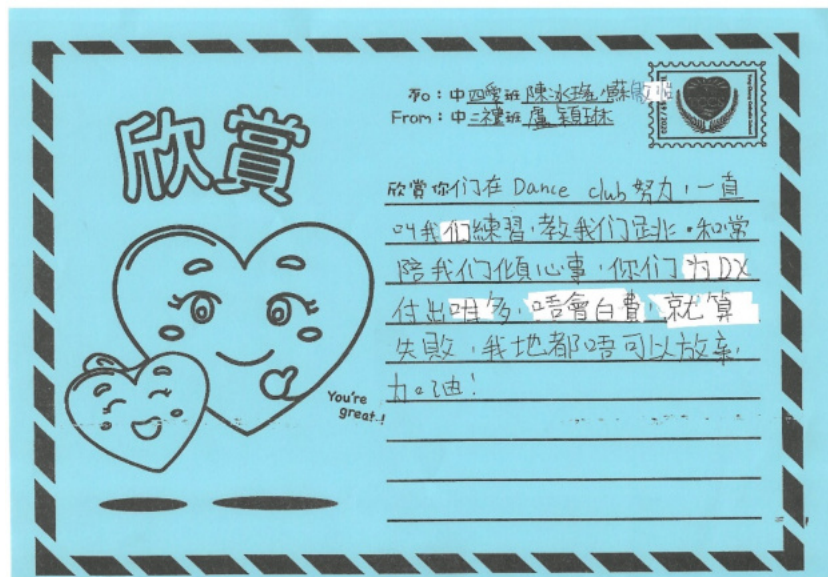 To：中四愛班 陳冰璇、蘇
From：中二禮班 盧穎琳
欣賞
欣賞你们在 Dance club 努力，一直
叫我们練習，教我们跳，和常
陪我们傾心事，你们为DX
付出咁多，唔會白費，就算
失敗，我地都唔可以放棄，
加油！
You're
great..!